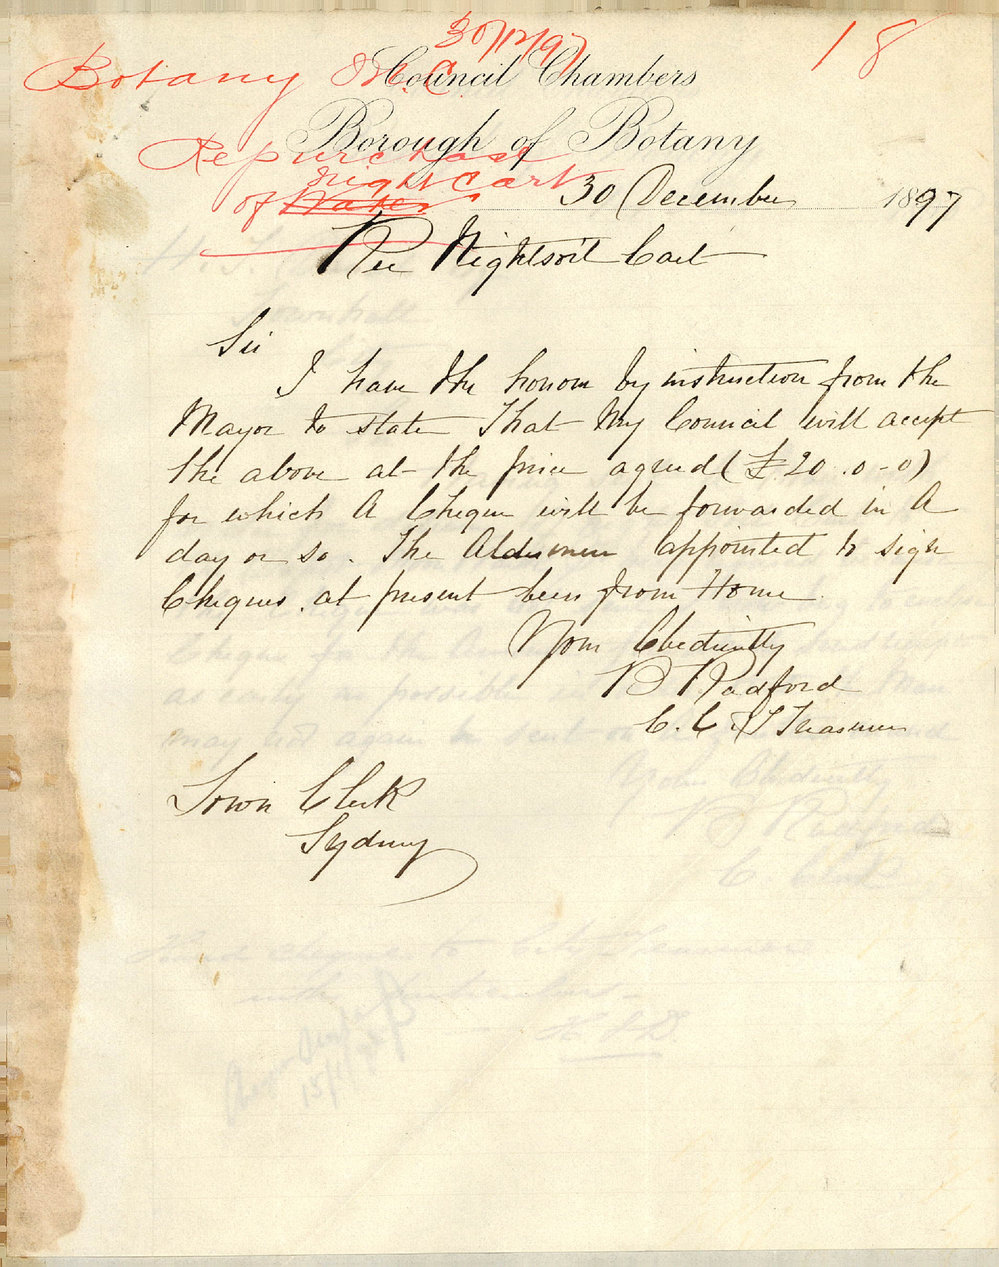 30/12/97
18
Botany B. C.
Council Chambers
Borough of Botany
Repurchase
Night Cart
of Water
30 December 1897
Re Nightsoil Cart
Sir
I have the honor by instruction from the
Mayor to state That my Council will accept
the above at the price agreed (£20.0-0)
for which A Cheque will be forwarded in A
day or so. The Aldermen appointed to sign
Cheques, at present been from Home.
Your Obediently
B Radford
C. C & Treasurer
Town Clerk
Sydney